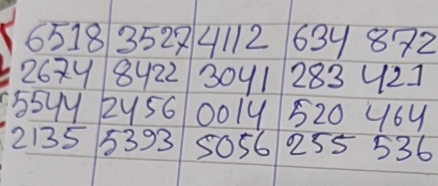 6518 3527 4112 634 872
2674 8422 3041 283 421
5544 2456 0014 520 464
2135 5393 5056 255 536